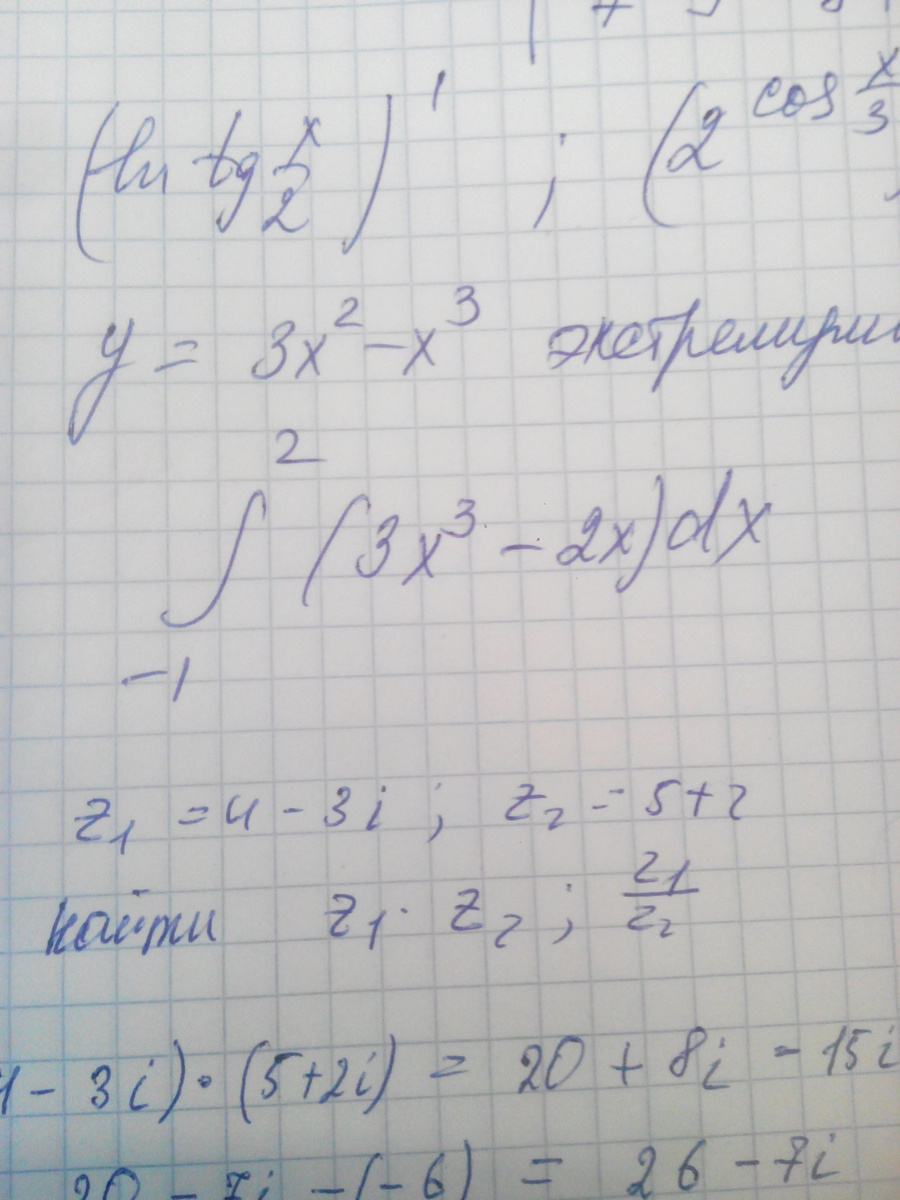 (ln tg x/2)' ; (2^cos x/3
y = 3x² - x³ экстремум
∫_{-1}^{2} (3x³ - 2x)dx
z₁ = 4 - 3i ; z₂ = 5 + 2
найти z₁ · z₂ ; z₁/z₂
- 3i) · (5+2i) = 20 + 8i - 15i
20 - 7i - (-6) = 26 - 7i